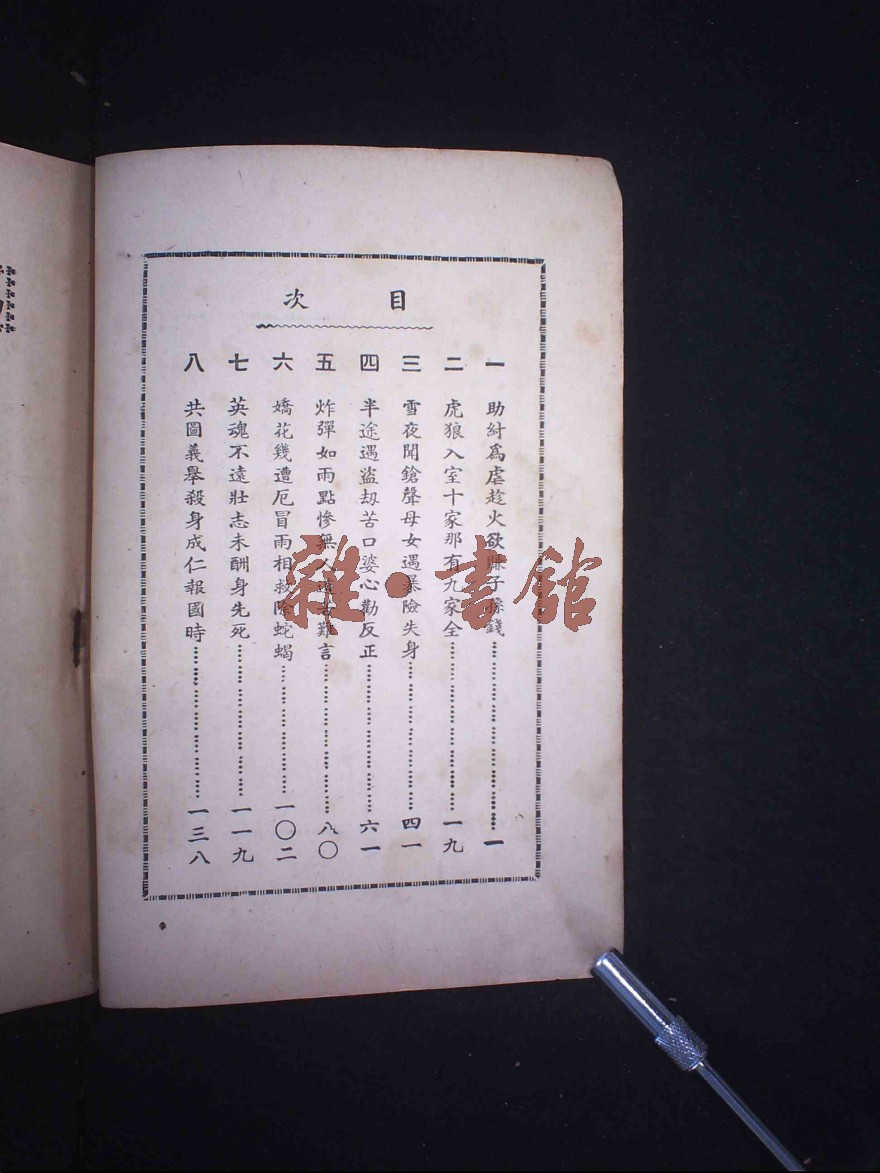 目次
一 助紂為虐趁火欲賺子孫錢 一
二 虎狼入室十家那有九家全 一九
三 雪夜聞鎗聲母女遇暴險失身 四一
四 半途遇盜刼苦口婆心勸反正 六一
五 炸彈如雨點慘無人道苦難言 八〇
六 嬌花幾遭厄冒雨相救除蛇蝎 一〇二
七 英魂不遠壯志未酬身先死 一一九
八 共圖義舉殺身成仁報國時 一三八
雜·書館